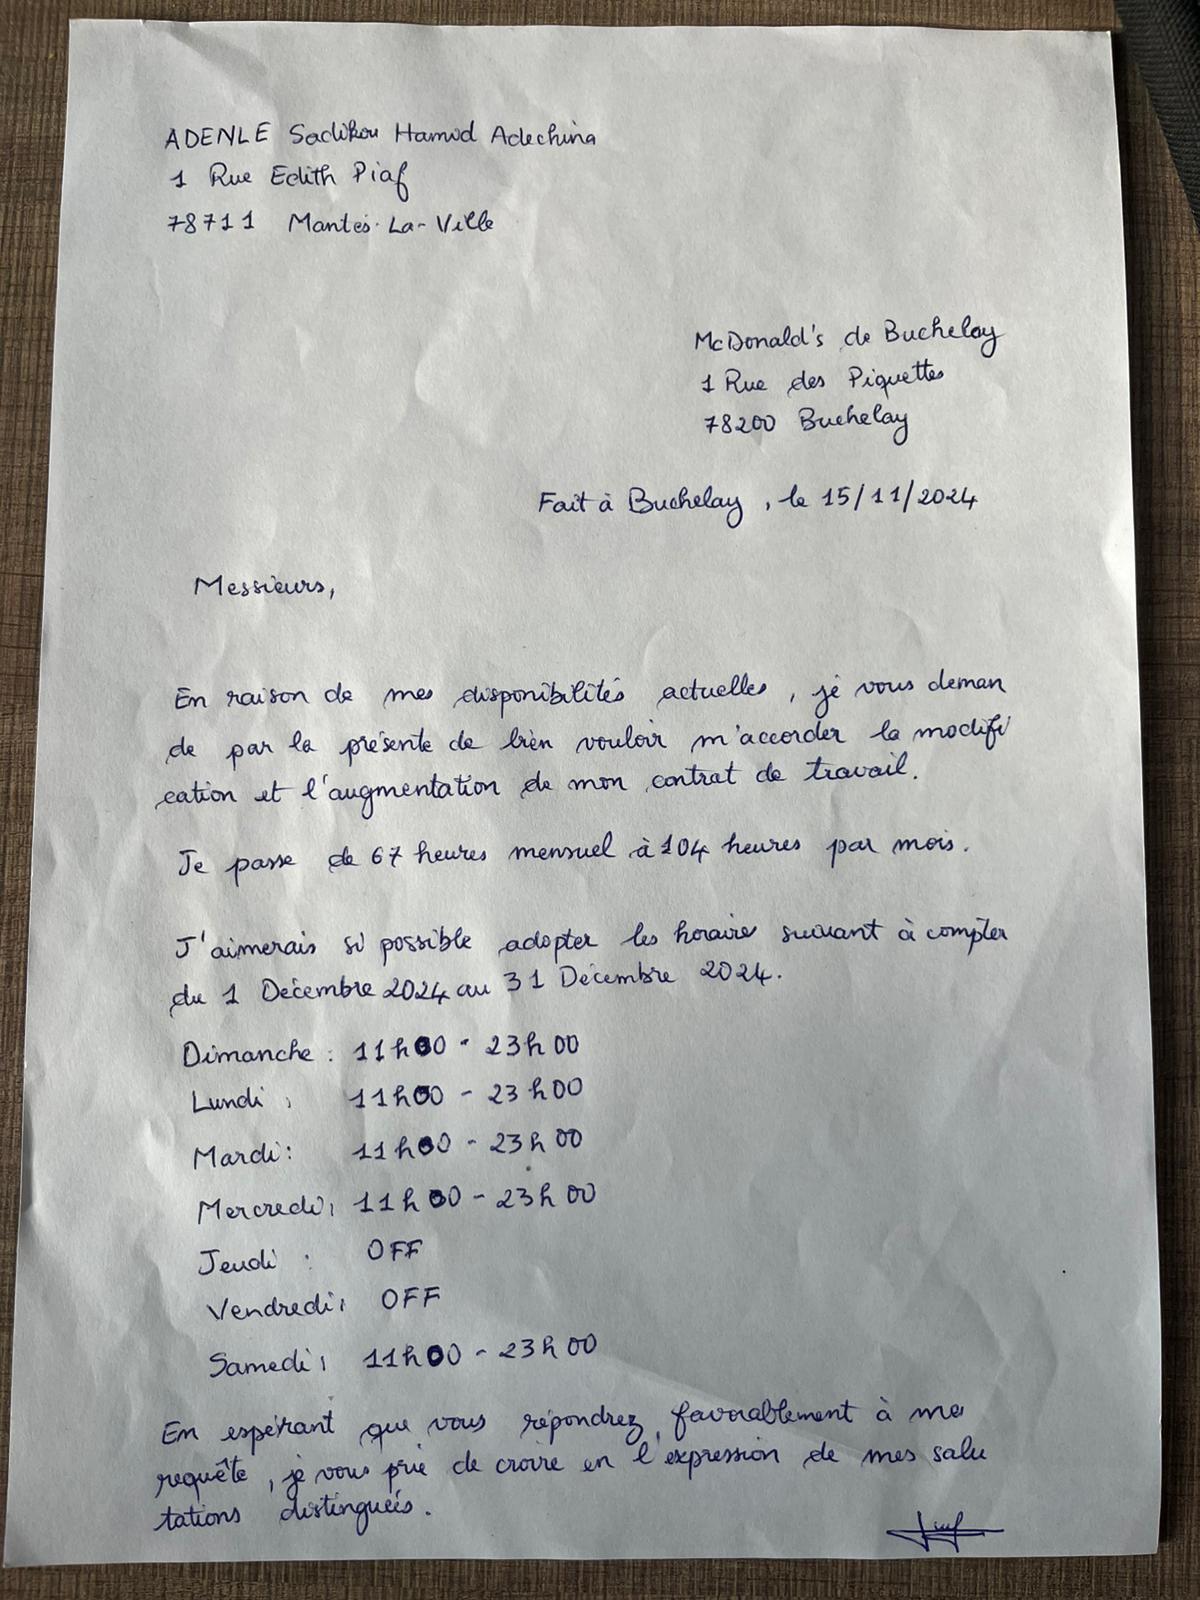 ADENLE Sadikou Hamid Adechina
1 Rue Edith Piaf
78711 Mantes-La-Ville
McDonald's de Buchelay
1 Rue des Piquettes
78200 Buchelay
Fait à Buchelay, le 15/11/2024
Messieurs,
En raison de mes disponibilités actuelles, je vous deman
de par la présente de bien vouloir m'accorder la modifi
cation et l'augmentation de mon contrat de travail.
Je passe de 67 heures mensuel à 104 heures par mois.
J'aimerais si possible adopter les horaires suivant à compter
du 1 Décembre 2024 au 31 Décembre 2024.
Dimanche : 11h00 - 23h00
Lundi : 11h00 - 23h00
Mardi : 11h00 - 23h00
Mercredi : 11h00 - 23h00
Jeudi : OFF
Vendredi : OFF
Samedi : 11h00 - 23h00
En espérant que vous répondrez favorablement à ma
requête, je vous prie de croire en l'expression de mes salu
tations distinguées.